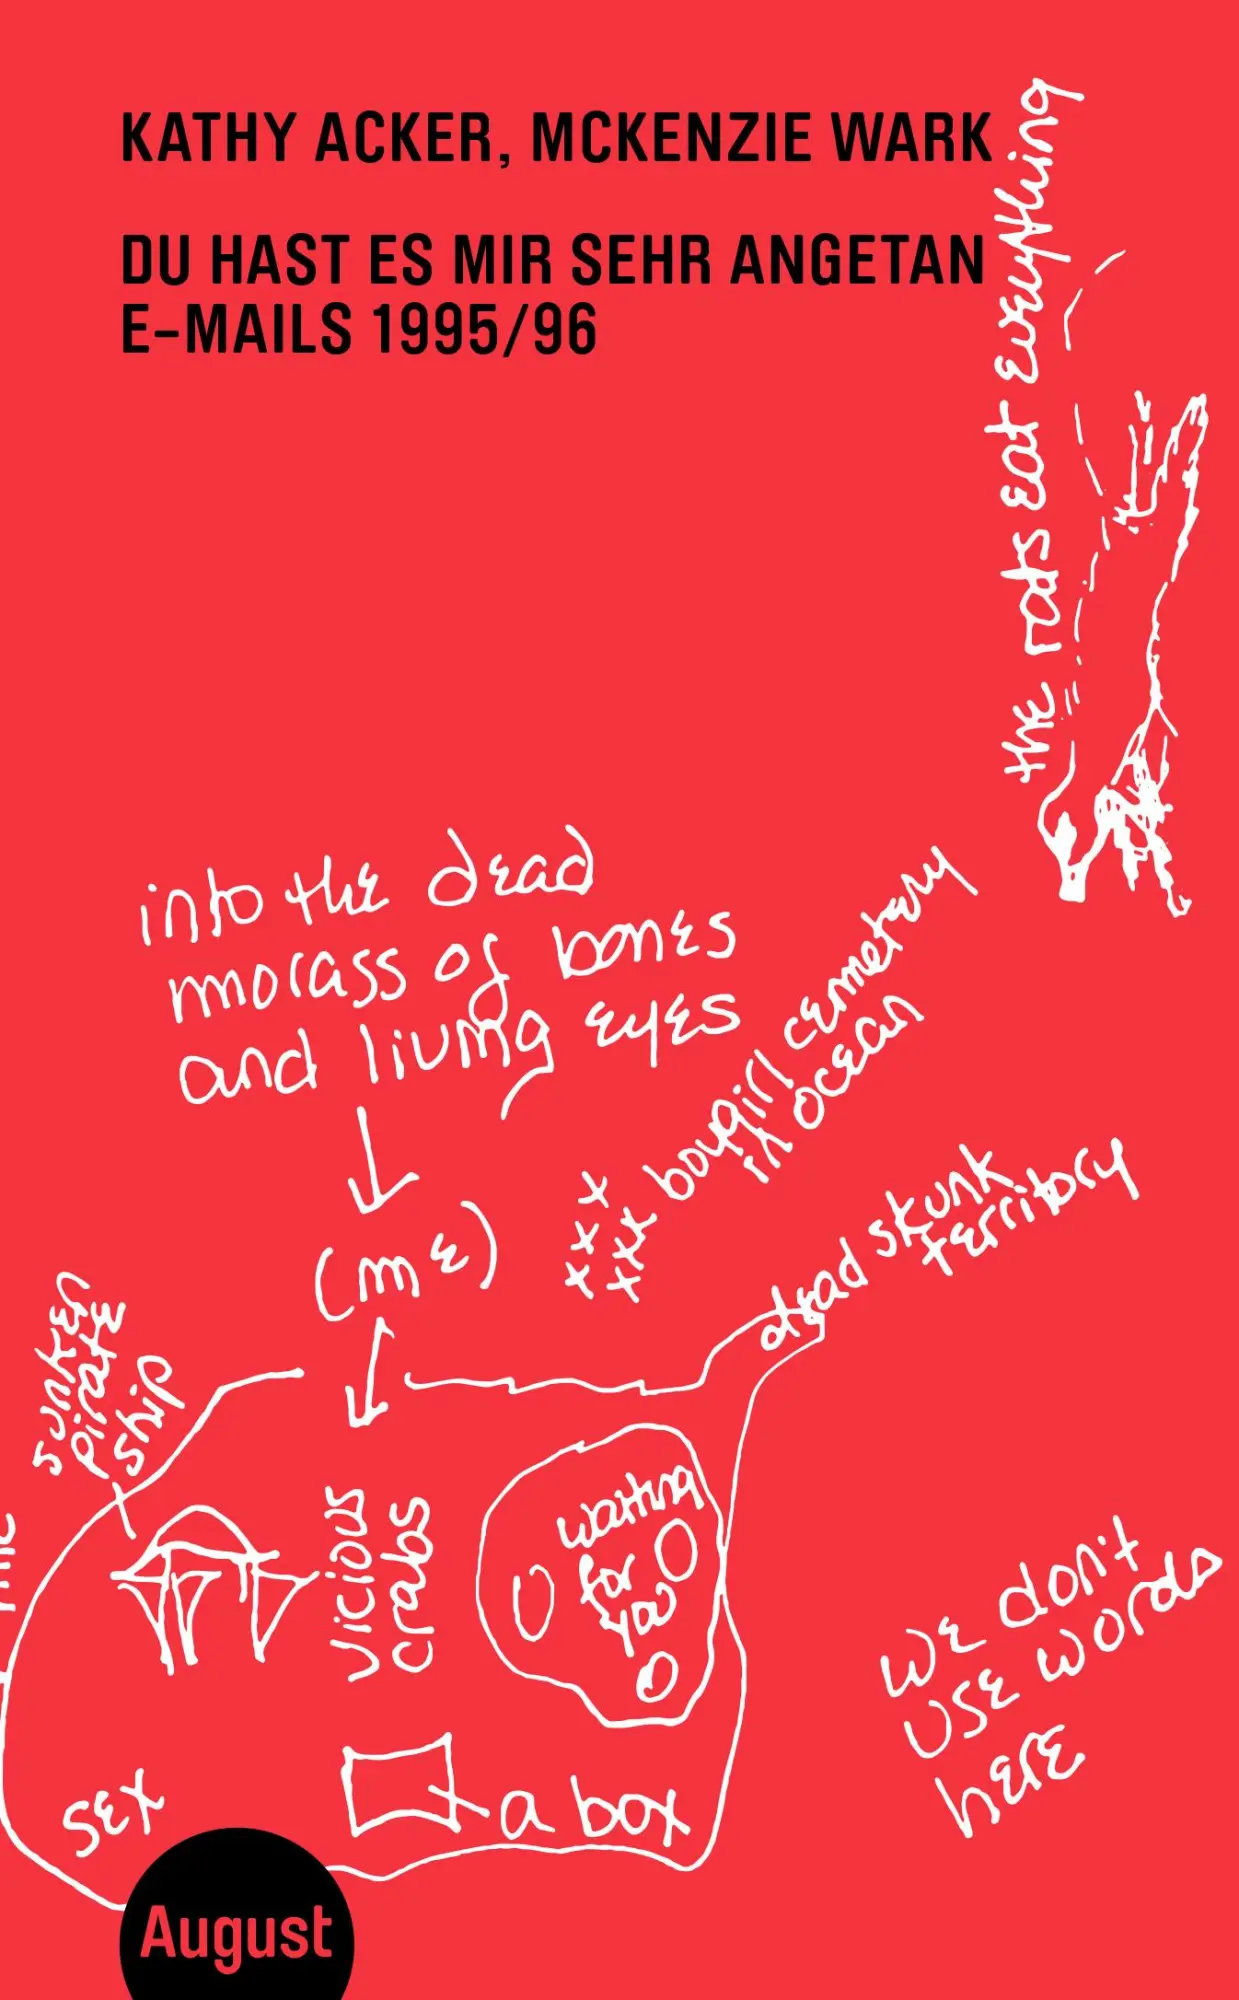 KATHY ACKER, MCKENZIE WARK
DU HAST ES MIR SEHR ANGETAN
E-MAILS 1995/96
the rats eat everything
into the dead
morass of bones
and living eyes
(me)
xxx
xxx boygirl cemetery
in ocean
dead skunk
territory
sunken
pirate
ship
vicious
crabs
waiting
for
you
we don't
use words
here
sex
x a box
August